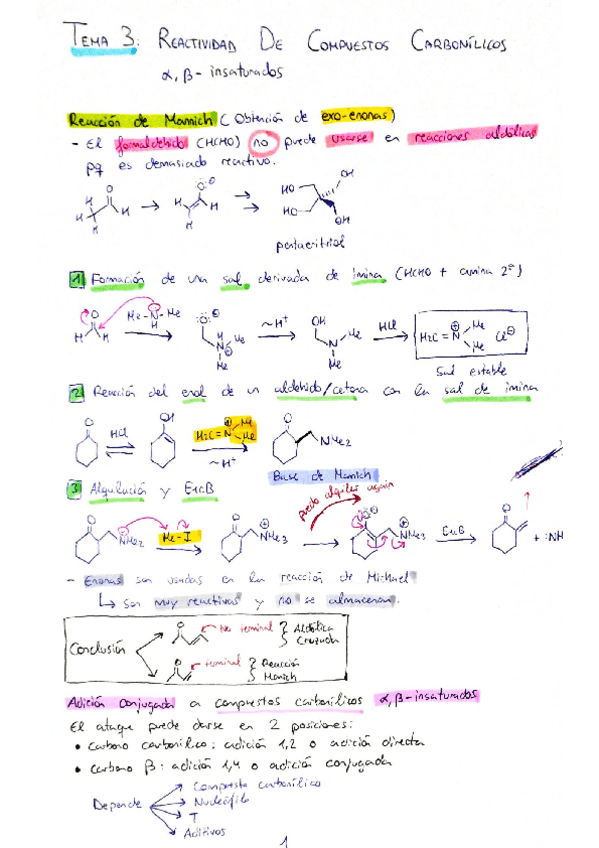 TEMA 3: REACTIVIDAD DE COMPUESTOS CARBONÍLICOS
α, β - insaturados
Reacción de Mannich (Obtención de exo-enonas)
- El formaldehído (HCHO) no puede usarse en reacciones aldólicas
pq es demasiado reactivo.
pentaeritritol
1 Formación de una sal derivada de imina (HCHO + amina 2ª)
Me - N - Me
~H⁺
HCl
H2C = N
Me
Me
Cl⊖
Sal estable
2 Reacción del enol de un aldehído/cetona con la sal de imina
HCl
H2C = N
Me
Me
~H⁺
NMe2
Base de Mannich
3 Alquilación y E1cB
NMe2
Me - I
NMe3
NMe3
E1cB
- Enonas son usadas en la reacción de Michael
↳ Son muy reactivas y no se almacenan.
Conclusión
No terminal } Aldólica Cruzada
terminal } Reacción Mannich
Adición Conjugada a compuestos carbonílicos α, β - insaturados
El ataque puede darse en 2 posiciones:
• Carbono carbonílico: adición 1,2 o adición directa
• Carbono β: adición 1,4 o adición conjugada
Depende
Compuesto carbonílico
Nucleófilo
T
Aditivos
1